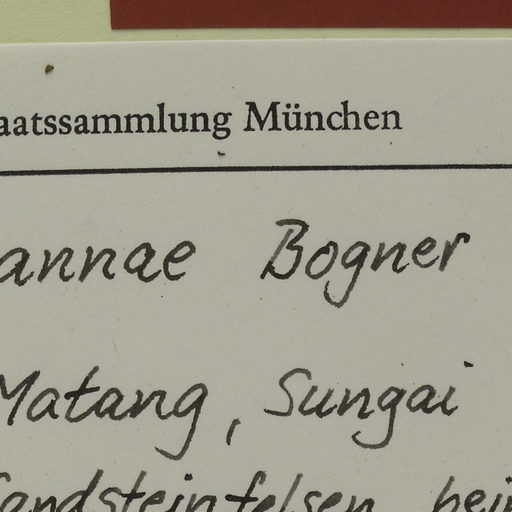 aatssammlung München
annae Bogner
Matang, Sungai
Sandsteinfelsen bei